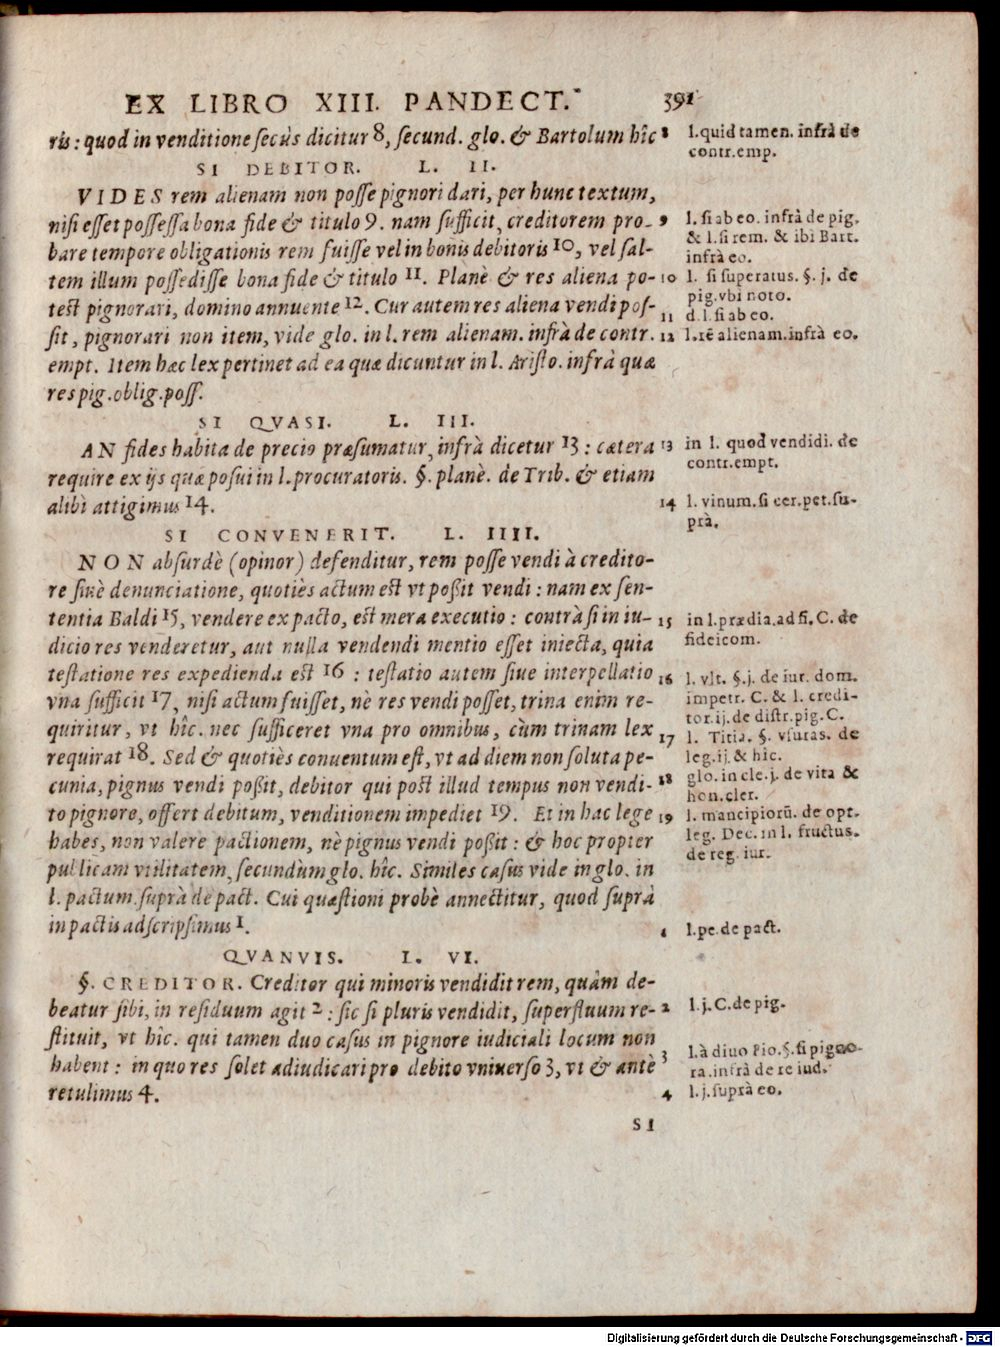 EX LIBRO XIII. PANDECT. 391
ris: quod in venditione secùs dicitur 8, secund. glo. & Bartolum hîc
SI DEBITOR. L. II.
VIDES rem alienam non posse pignori dari, per hunc textum,
nisi esset possessa bona fide & titulo 9. nam sufficit, creditorem pro-
bare tempore obligationis rem fuisse vel in bonis debitoris 10, vel sal-
tem illum possedisse bona fide & titulo 11. Planè & res aliena po-
test pignorari, domino annuente 12. Cur autem res aliena vendi pos-
sit, pignorari non item, vide glo. in l. rem alienam. infrà de contr.
empt. Item hæc lex pertinet ad ea quæ dicuntur in l. Aristo. infrà quæ
res pig. oblig. poss.
SI QVASI. L. III.
AN fides habita de precio præsumatur, infrà dicetur 13: cætera
require ex ijs quæ posui in l. procuratoris. §. planè. de Trib. & etiam
alibì attigimus 14.
SI CONVENERIT. L. IIII.
NON absurdè (opinor) defenditur, rem posse vendi à credito-
re sinè denunciatione, quotiès actum est vt possit vendi: nam ex sen-
tentia Baldi 15, vendere ex pacto, est mera executio: contrà si in iu-
dicio res venderetur, aut nulla vendendi mentio esset iniecta, quia
testatione res expedienda est 16: testatio autem siue interpellatio
vna sufficit 17, nisi actum fuisset, nè res vendi posset, trina enim re-
quiritur, vt hîc. nec sufficeret vna pro omnibus, cùm trinam lex
requirat 18. Sed & quotiès conuentum est, vt ad diem non soluta pe-
cunia, pignus vendi possit, debitor qui post illud tempus non vendi-
to pignore, offert debitum, venditionem impediet 19. Et in hac lege
habes, non valere pactionem, nè pignus vendi possit: & hoc propter
publicam vtilitatem, secundùm glo. hîc. Similes casus vide in glo. in
l. pactum. suprà de pact. Cui quæstioni probè annectitur, quod suprà
in pactis adscripsimus 1.
QVANVIS. L. VI.
§. CREDITOR. Creditor qui minoris vendidit rem, quàm de-
beatur sibi, in residuum agit 2: sic si pluris vendidit, superfluum re-
stituit, vt hîc. qui tamen duo casus in pignore iudiciali locum non
habent: in quo res solet adiudicari pro debito vniuerso 3, vt & antè
retulimus 4.
SI
8 l. quid tamen. infrà de
contr. emp.
9 l. si ab eo. infrà de pig.
& l. si rem. & ibi Bart.
infrà eo.
10 l. si superatus. §. j. de
pig. vbi noto.
11 d. l. si ab eo.
12 l. rē alienam. infrà eo.
13 in l. quod vendidi. de
contr. empt.
14 l. vinum. si cer. pet. su-
prà.
15 in l. prædia. ad fi. C. de
fideicom.
16 l. vlt. §. j. de iur. dom.
impetr. C. & l. credi-
tor. ij. de distr. pig. C.
17 l. Titia. §. vsuras. de
leg. ij. & hîc.
18 glo. in cle. j. de vita &
hon. cler.
19 l. mancipiorũ. de opt.
leg. Dec. in l. fructus.
de reg. iur.
1 l. pe. de pact.
2 l. j. C. de pig.
3 l. à diuo Pio. §. si pigno-
ra. infrà de re iud.
4 l. j. suprà eo.
Digitalisierung gefördert durch die Deutsche Forschungsgemeinschaft - DFG